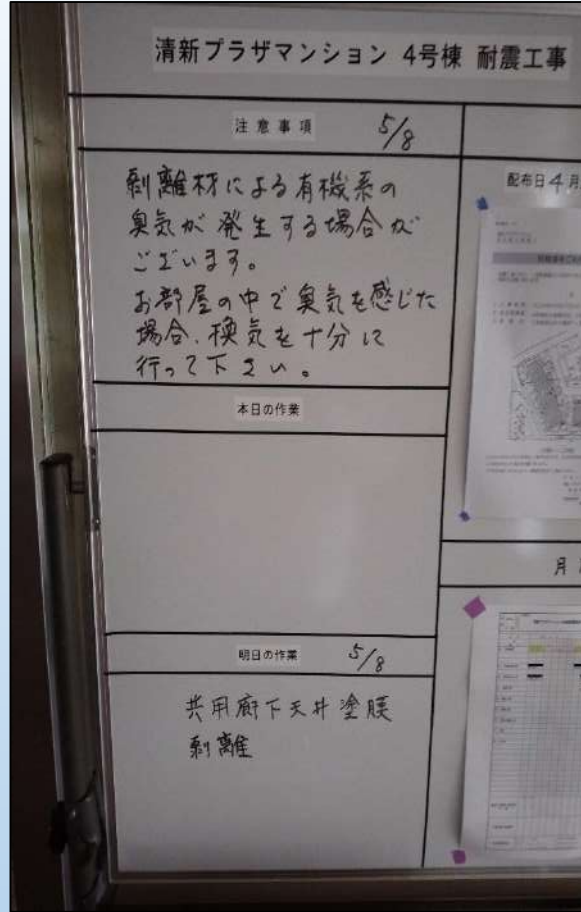 清新プラザマンション 4号棟 耐震工事
注意事項 5/8
剥離材による有機系の
臭気が発生する場合が
ございます。
お部屋の中で臭気を感じた
場合、換気を十分に
行って下さい。
本日の作業
明日の作業 5/8
共用廊下天井塗膜
剥離
配布日4月
月